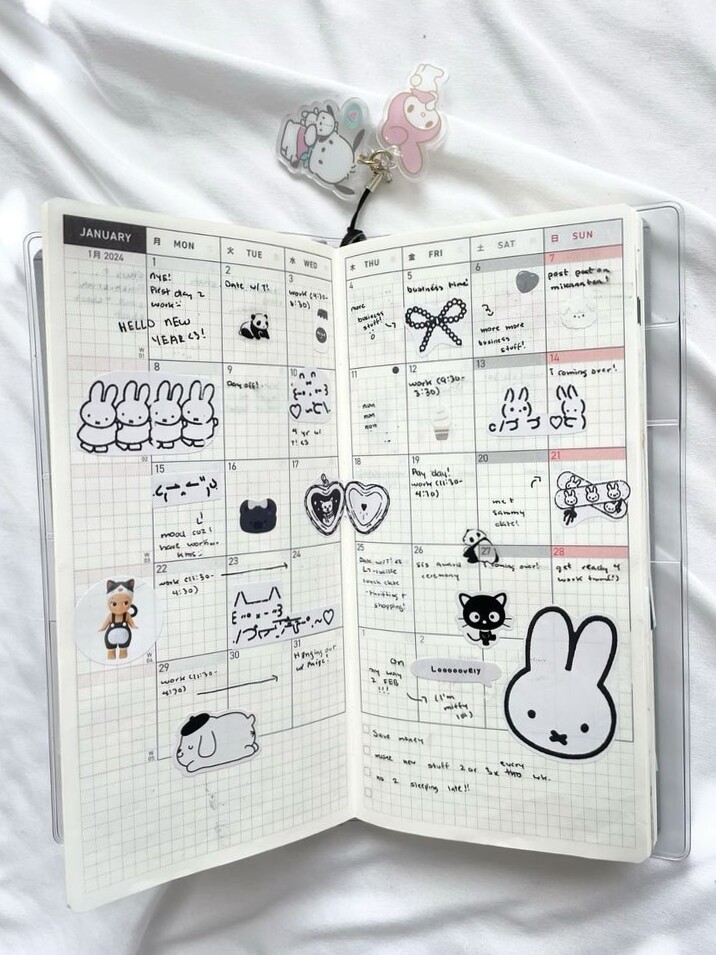 JANUARY
1月 2024
月 MON
火 TUE
水 WED
木 THU
金 FRI
土 SAT
日 SUN
1
NYE!
First day 2
work
HELLO NEW
YEAR <3!
2
Date w/ T!
3
work (9:30-
4
more
business
stuff!
5
business time!
6
more more
business
stuff!
7
post post on
8
9
Day off!
10
11
nun
nun
nun
12
work (9:30-
3:30)
13
14
T coming over!
15
mood cuz i
have work
16
17
18
19
Pay day!
work (11:30-
4:30)
20
me +
sammy
date!
21
22
work (11:30-
4:30)
23
24
25
lunch date
thrifting +
shopping!
26
award
ceremony
27
coming over!
28
get ready 4
work
29
work (11:30-
4:30)
30
31
Hanging out
w/
1
on
my way
2 FEB
!!!
2
Looooovely
(I'm
miffy
W
01
02
W
03
W
04
W
05
Save money
make new stuff 2 or 3x every two wk.
no 2 sleeping late!!